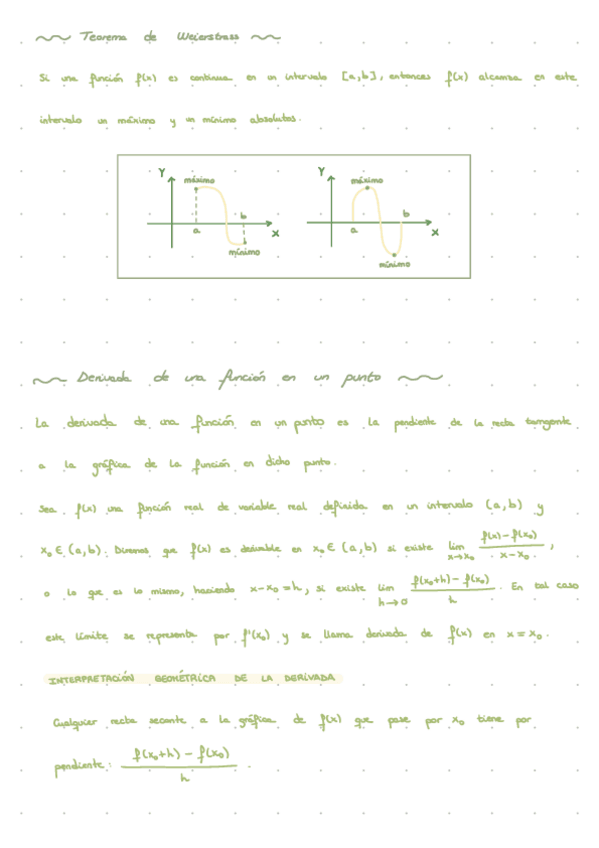 Teorema de Weierstrass
Si una función f(x) es continua en un intervalo [a,b], entonces f(x) alcanza en este
intervalo un máximo y un mínimo absolutos.
Y
máximo
a
b
X
mínimo
Y
máximo
a
b
X
mínimo
Derivada de una función en un punto
La derivada de una función en un punto es la pendiente de la recta tangente
a la gráfica de la función en dicho punto.
Sea f(x) una función real de variable real definida en un intervalo (a,b) y
x₀ ∈ (a,b). Diremos que f(x) es derivable en x₀ ∈ (a,b) si existe lim x→x₀ (f(x) − f(x₀))/(x − x₀),
o lo que es lo mismo, haciendo x − x₀ = h, si existe lim h→0 (f(x₀+h) − f(x₀))/h. En tal caso
este límite se representa por f'(x₀) y se llama derivada de f(x) en x = x₀.
INTERPRETACIÓN GEOMÉTRICA DE LA DERIVADA
Cualquier recta secante a la gráfica de f(x) que pase por x₀ tiene por
pendiente: (f(x₀+h) − f(x₀))/h.